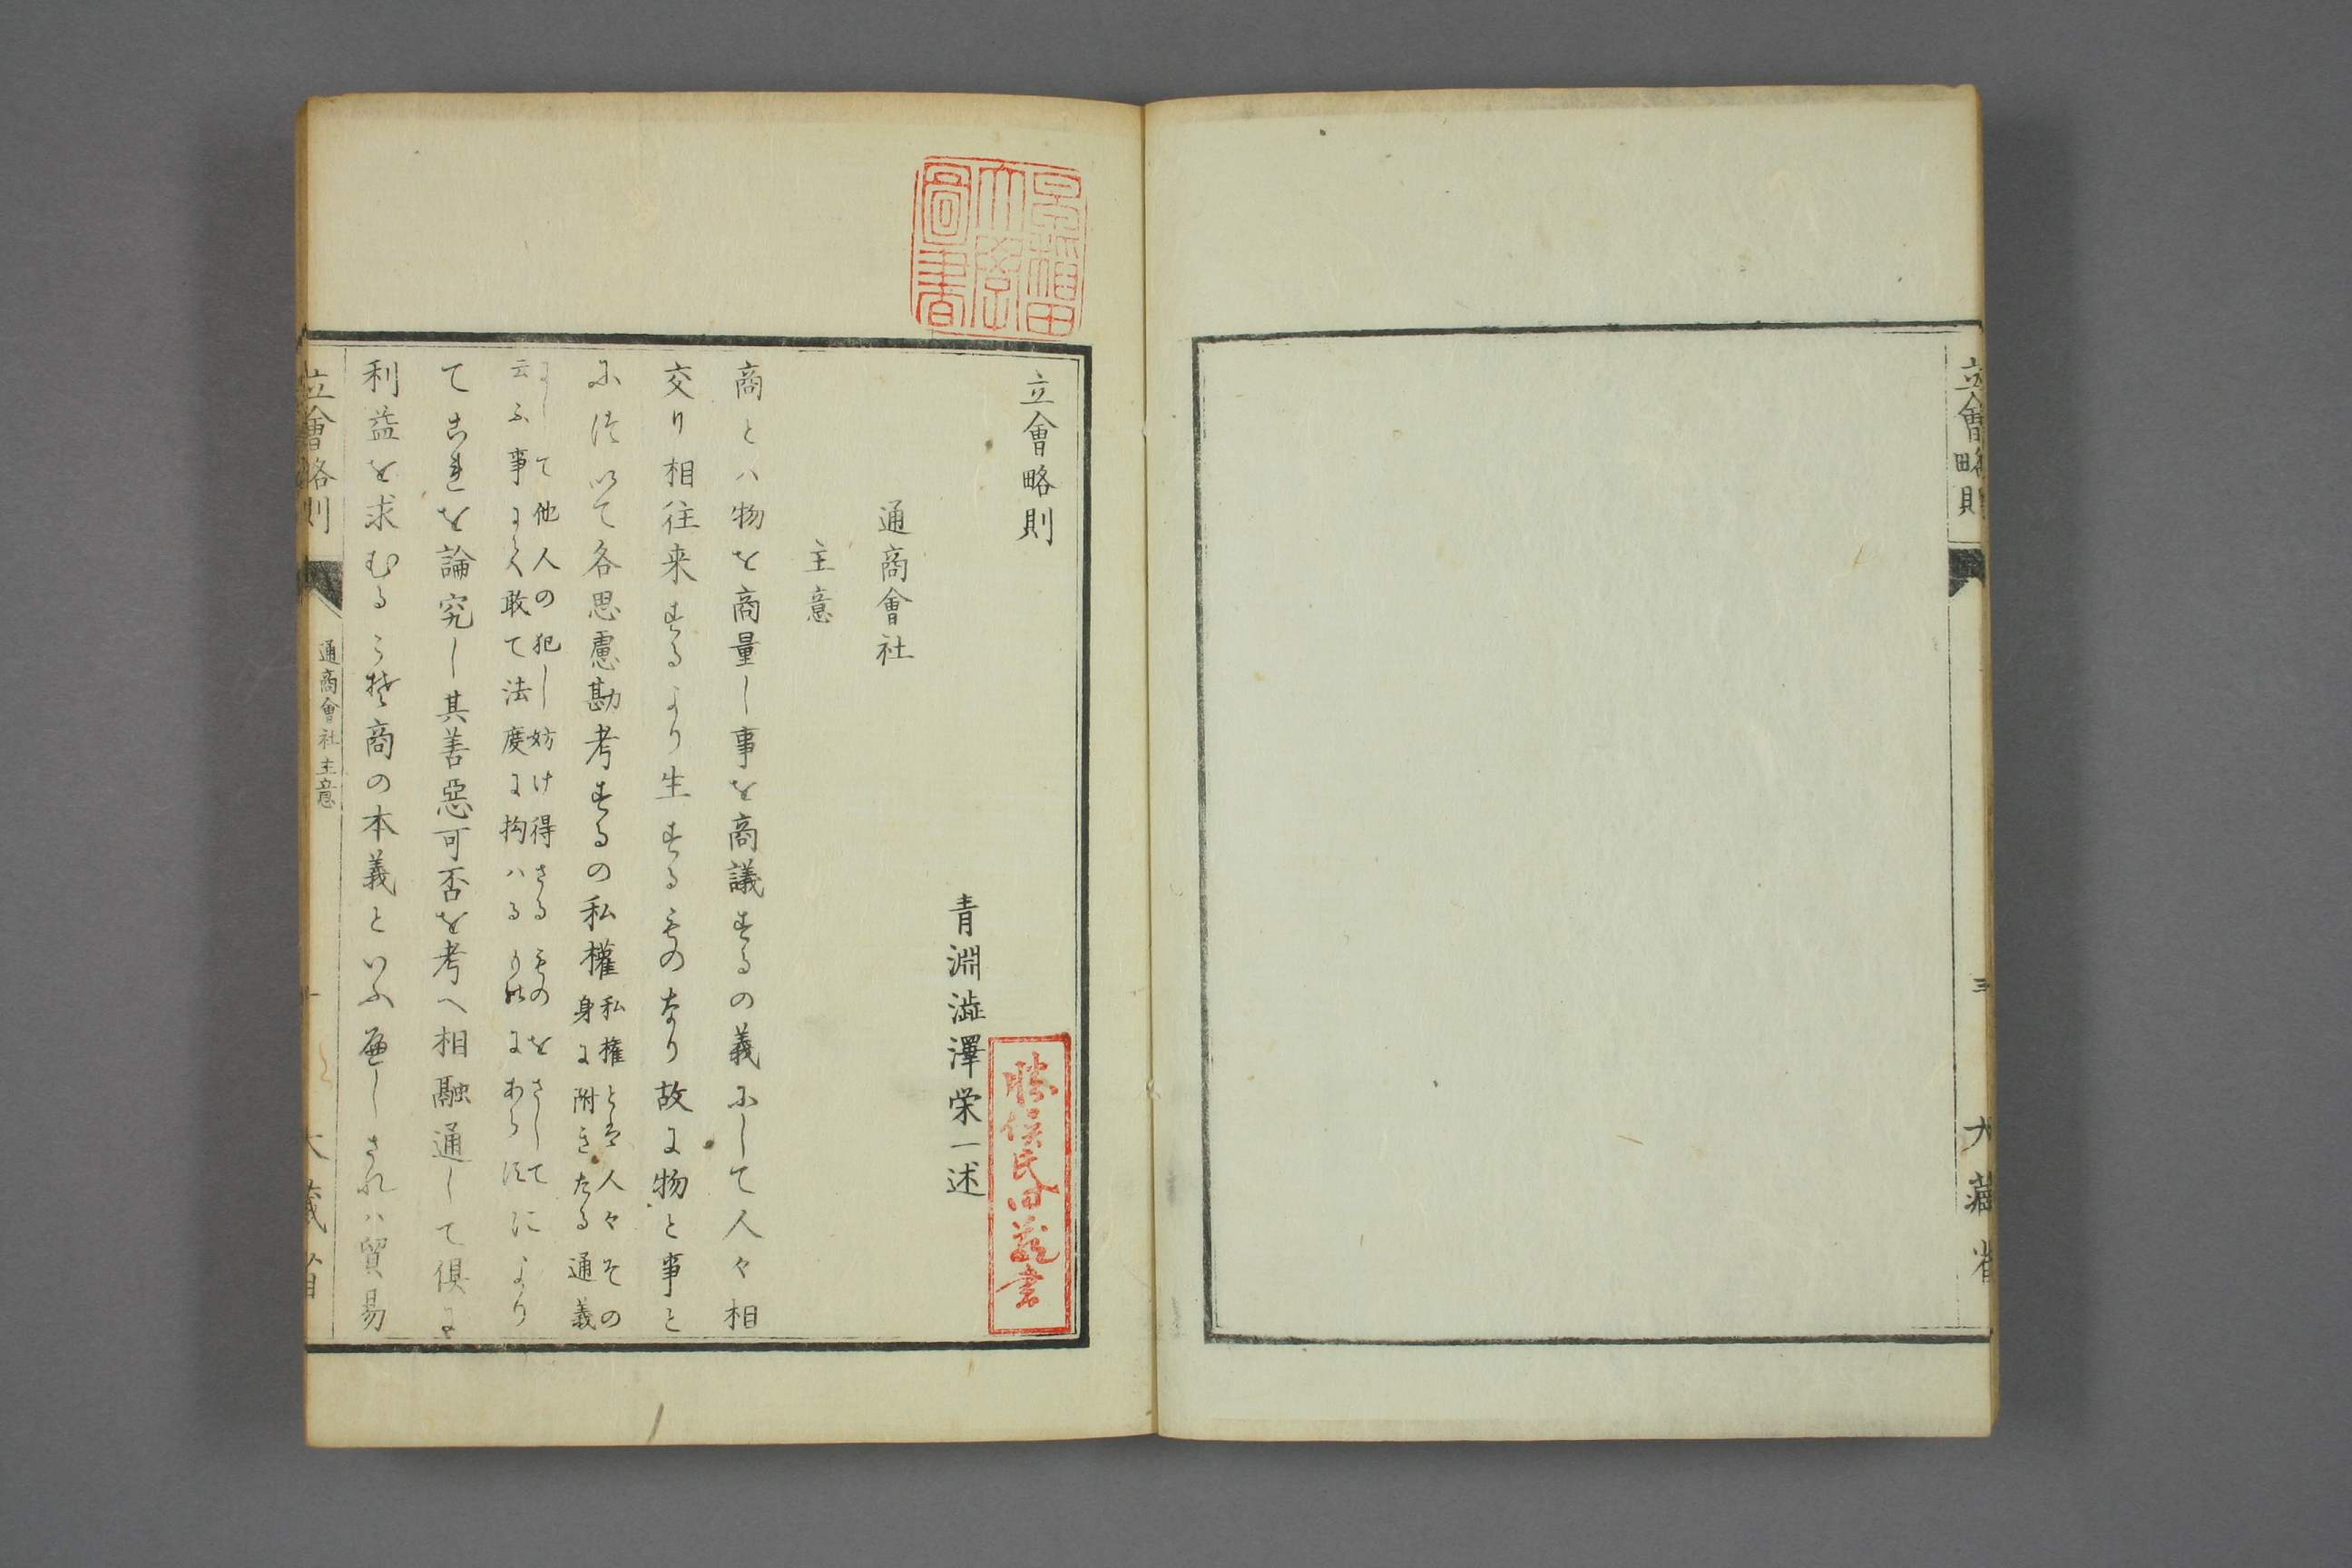 立會略則
三
大藏省
早稲田
大學
圖書
立會略則
青淵澁澤栄一述
通商會社
主意
商とハ物を商量し事を商議するの義にして人々相
交り相往来するより生するものなり故に物と事と
について各思慮勘考するの私權
私権とは人々その
身に附きたる通義
にして他人の犯し妨け得さるものをさして
云ふ事にて敢て法度に拘ハる にあらす
により
てこれを論究し其善惡可否を考へ相融通して倶に
利益を求むるこそ商の本義といふへしされハ貿易
立會略則
通商會社 主意
大藏省